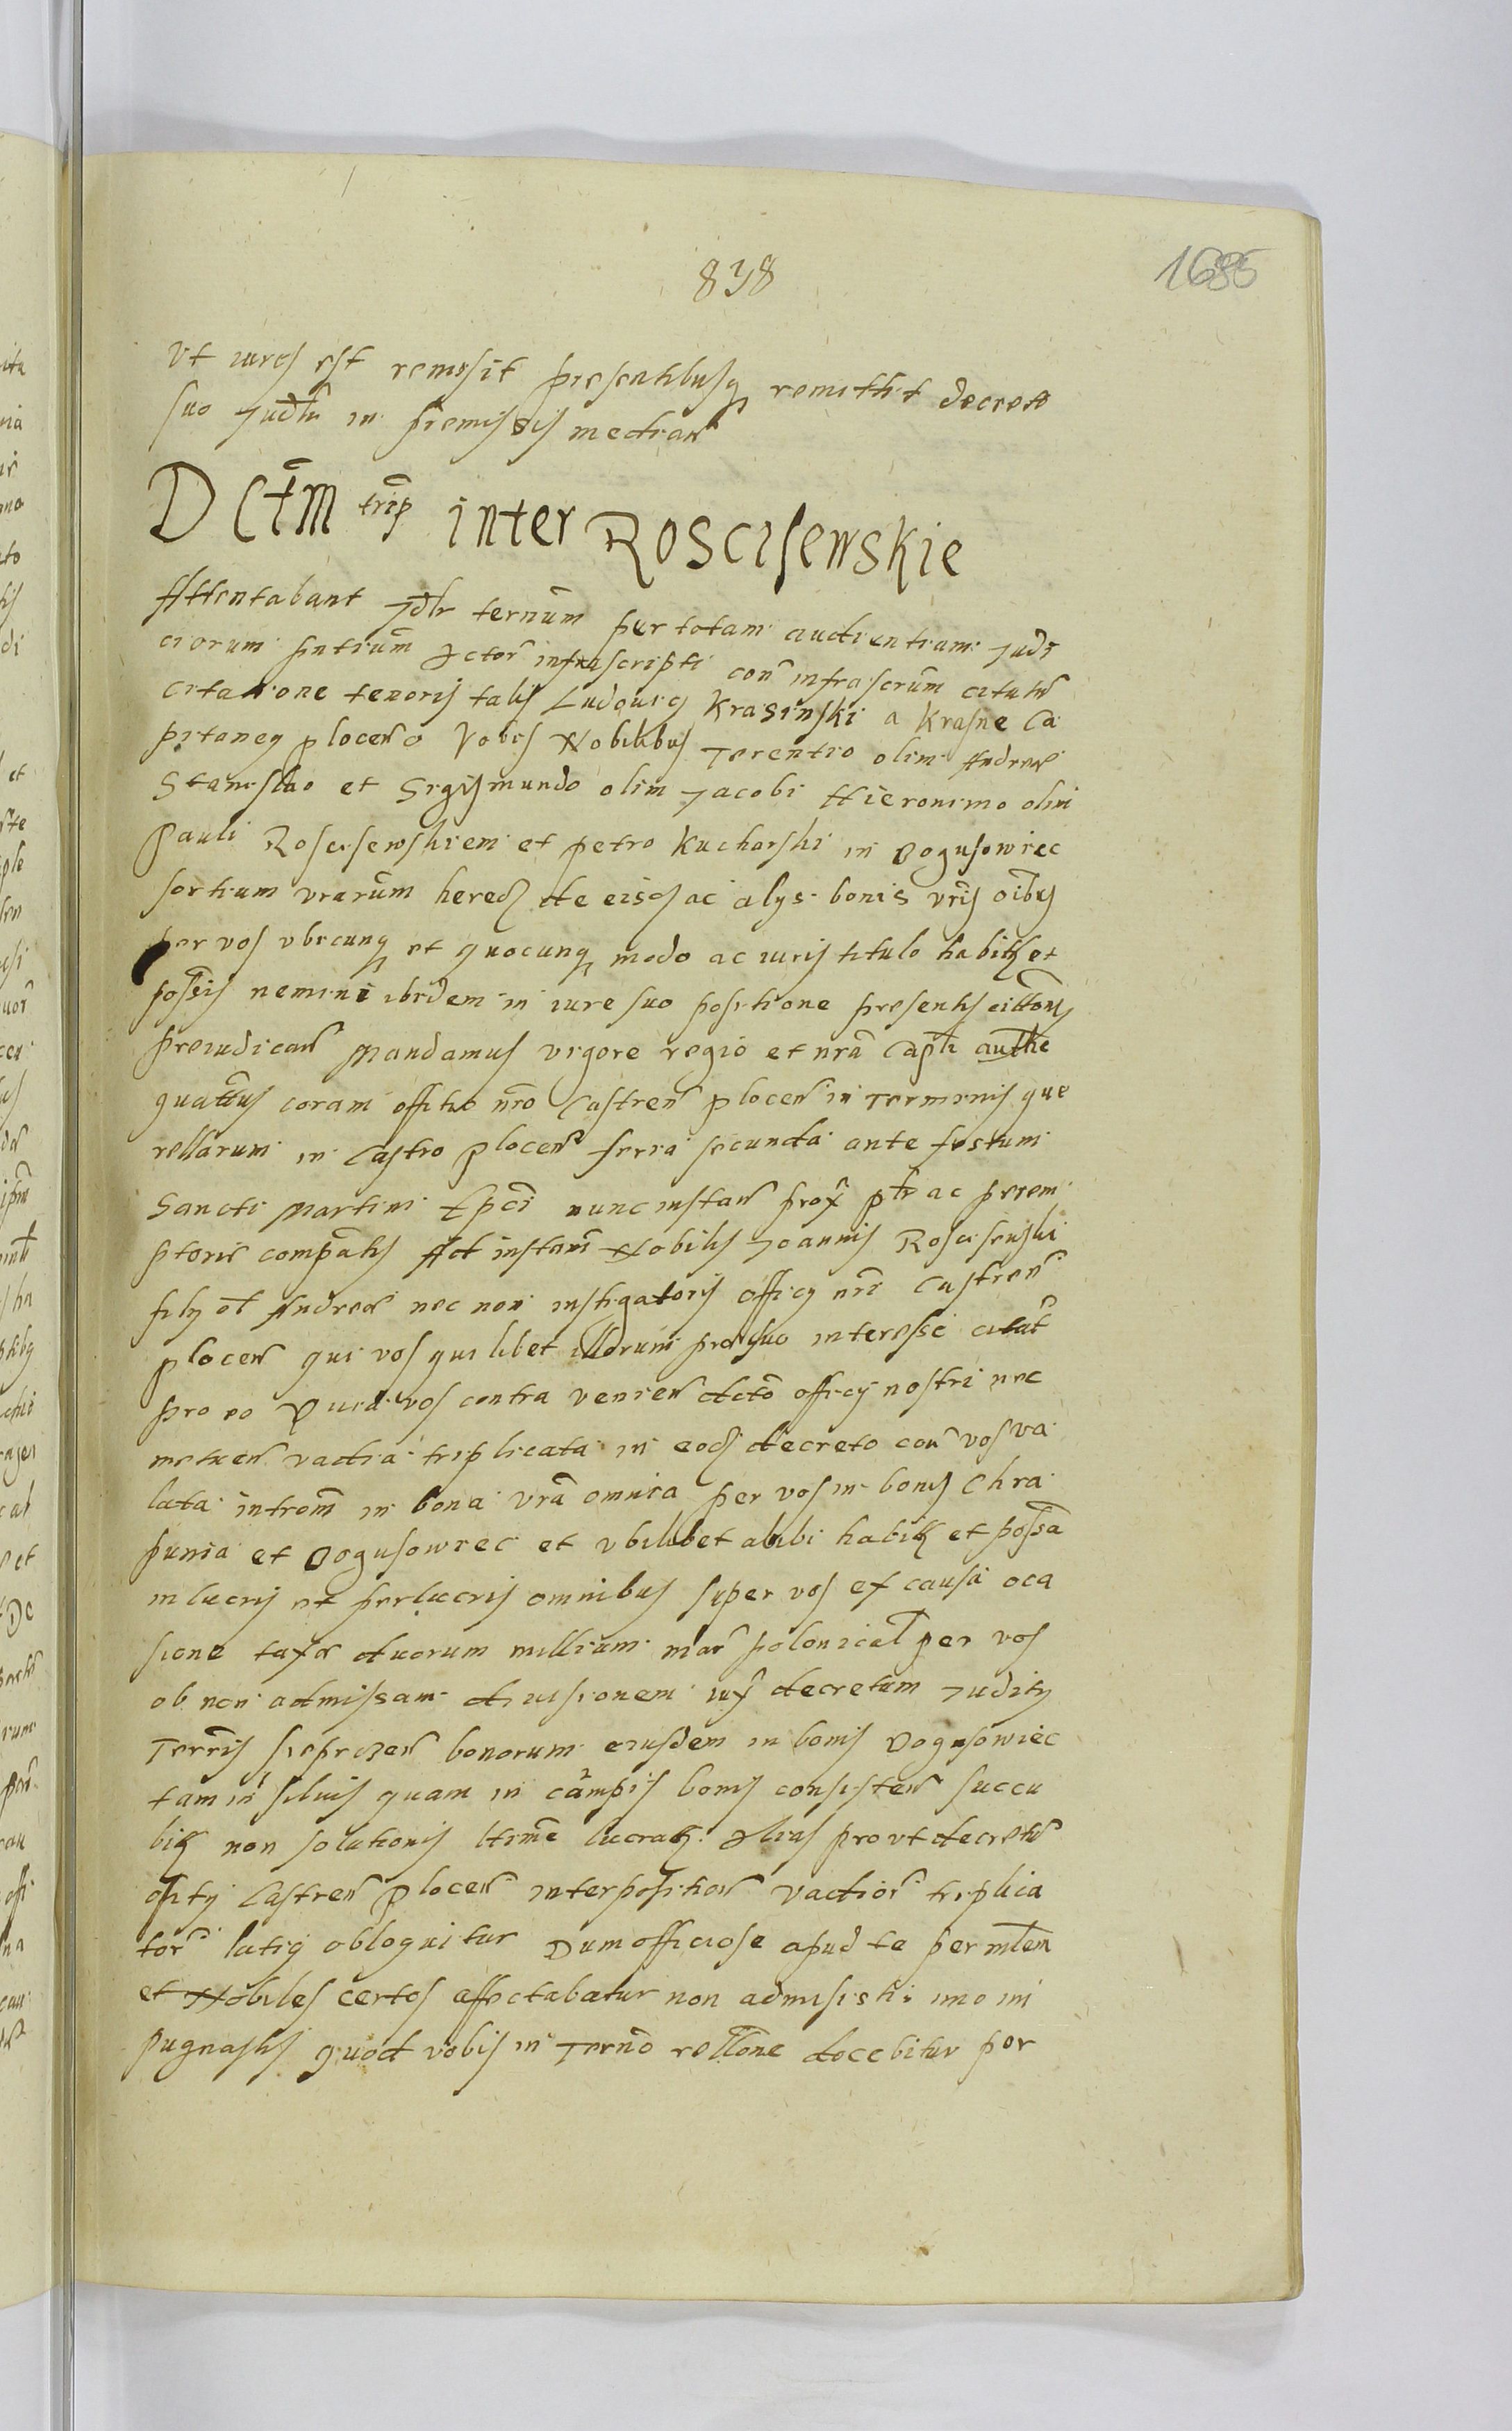 838
1685
Vt iuris est remisit presentibusq remittit decreto
suo Judtr in premissis median
DCtm trip inter Roscisewskie
Attentabant Jdtr ternum per totam audientiam Judi
ciorum pntium Actor infrascripti con infrascrum citatu
citatione tenoris talis Ludouicq Krasinski a Krasne Ca
pitaneq plocen Vobis Nobilibus Terentio olim Andree
Stanislao et Sigismundo olim Jacobi Hieronimo olim
Pauli Roscisewskiem et petro Kucharski in Bogusowiec
sortium vrarum hered de eisd ac alys bonis vris oibus
per vos vbicunq et quocunq modo ac iuris titulo habit et
possis nemini ibidem in iure suo positione presentis cittonis
preiudican Mandamus vigore regio et nra Capli authe
quattus coram offitio nro Castren plocen in Terminis que
rellarum in Castro plocen feria secunda ante festum
Sancti Martini Epci nunc instan prox ptr ac perem
ptorie compatis Ad instam Nobilis Joannis Roscisewski
fily ol Andree nec non instigatoris officy nri Castren
plocen qui vos quilibet illorum pro suo interesse citat
pro eo Quia vos contra venien dcto officy nostri nec
metuen vadia triplicata in eod decreto con vos va
lata introm in bona vra omnia per vos in bonis Chra
punia et Bogusowiec et vbilibet alibi habit et possa
in lucris et perlucris omnibus super vos ex causa oca
sione taxa duorum millium mar polonical per vos
ob non admissam diuisionem iux decretum Judity
Terris sieprczen bonorum eiusdem in bonis Bogusowiec
tam in siluis quam in campis bonis consisten succu
bit non solutionis ltime lucrat Alias pro vt decretu
offity Castren plocen interposition vadior triplica
tor latiq obloquitur Dum officiose apud te per mlem
et Nobiles certos affectabatur non admisisti imo im
pugnastis quod vobis in Terno rellone docebitur per